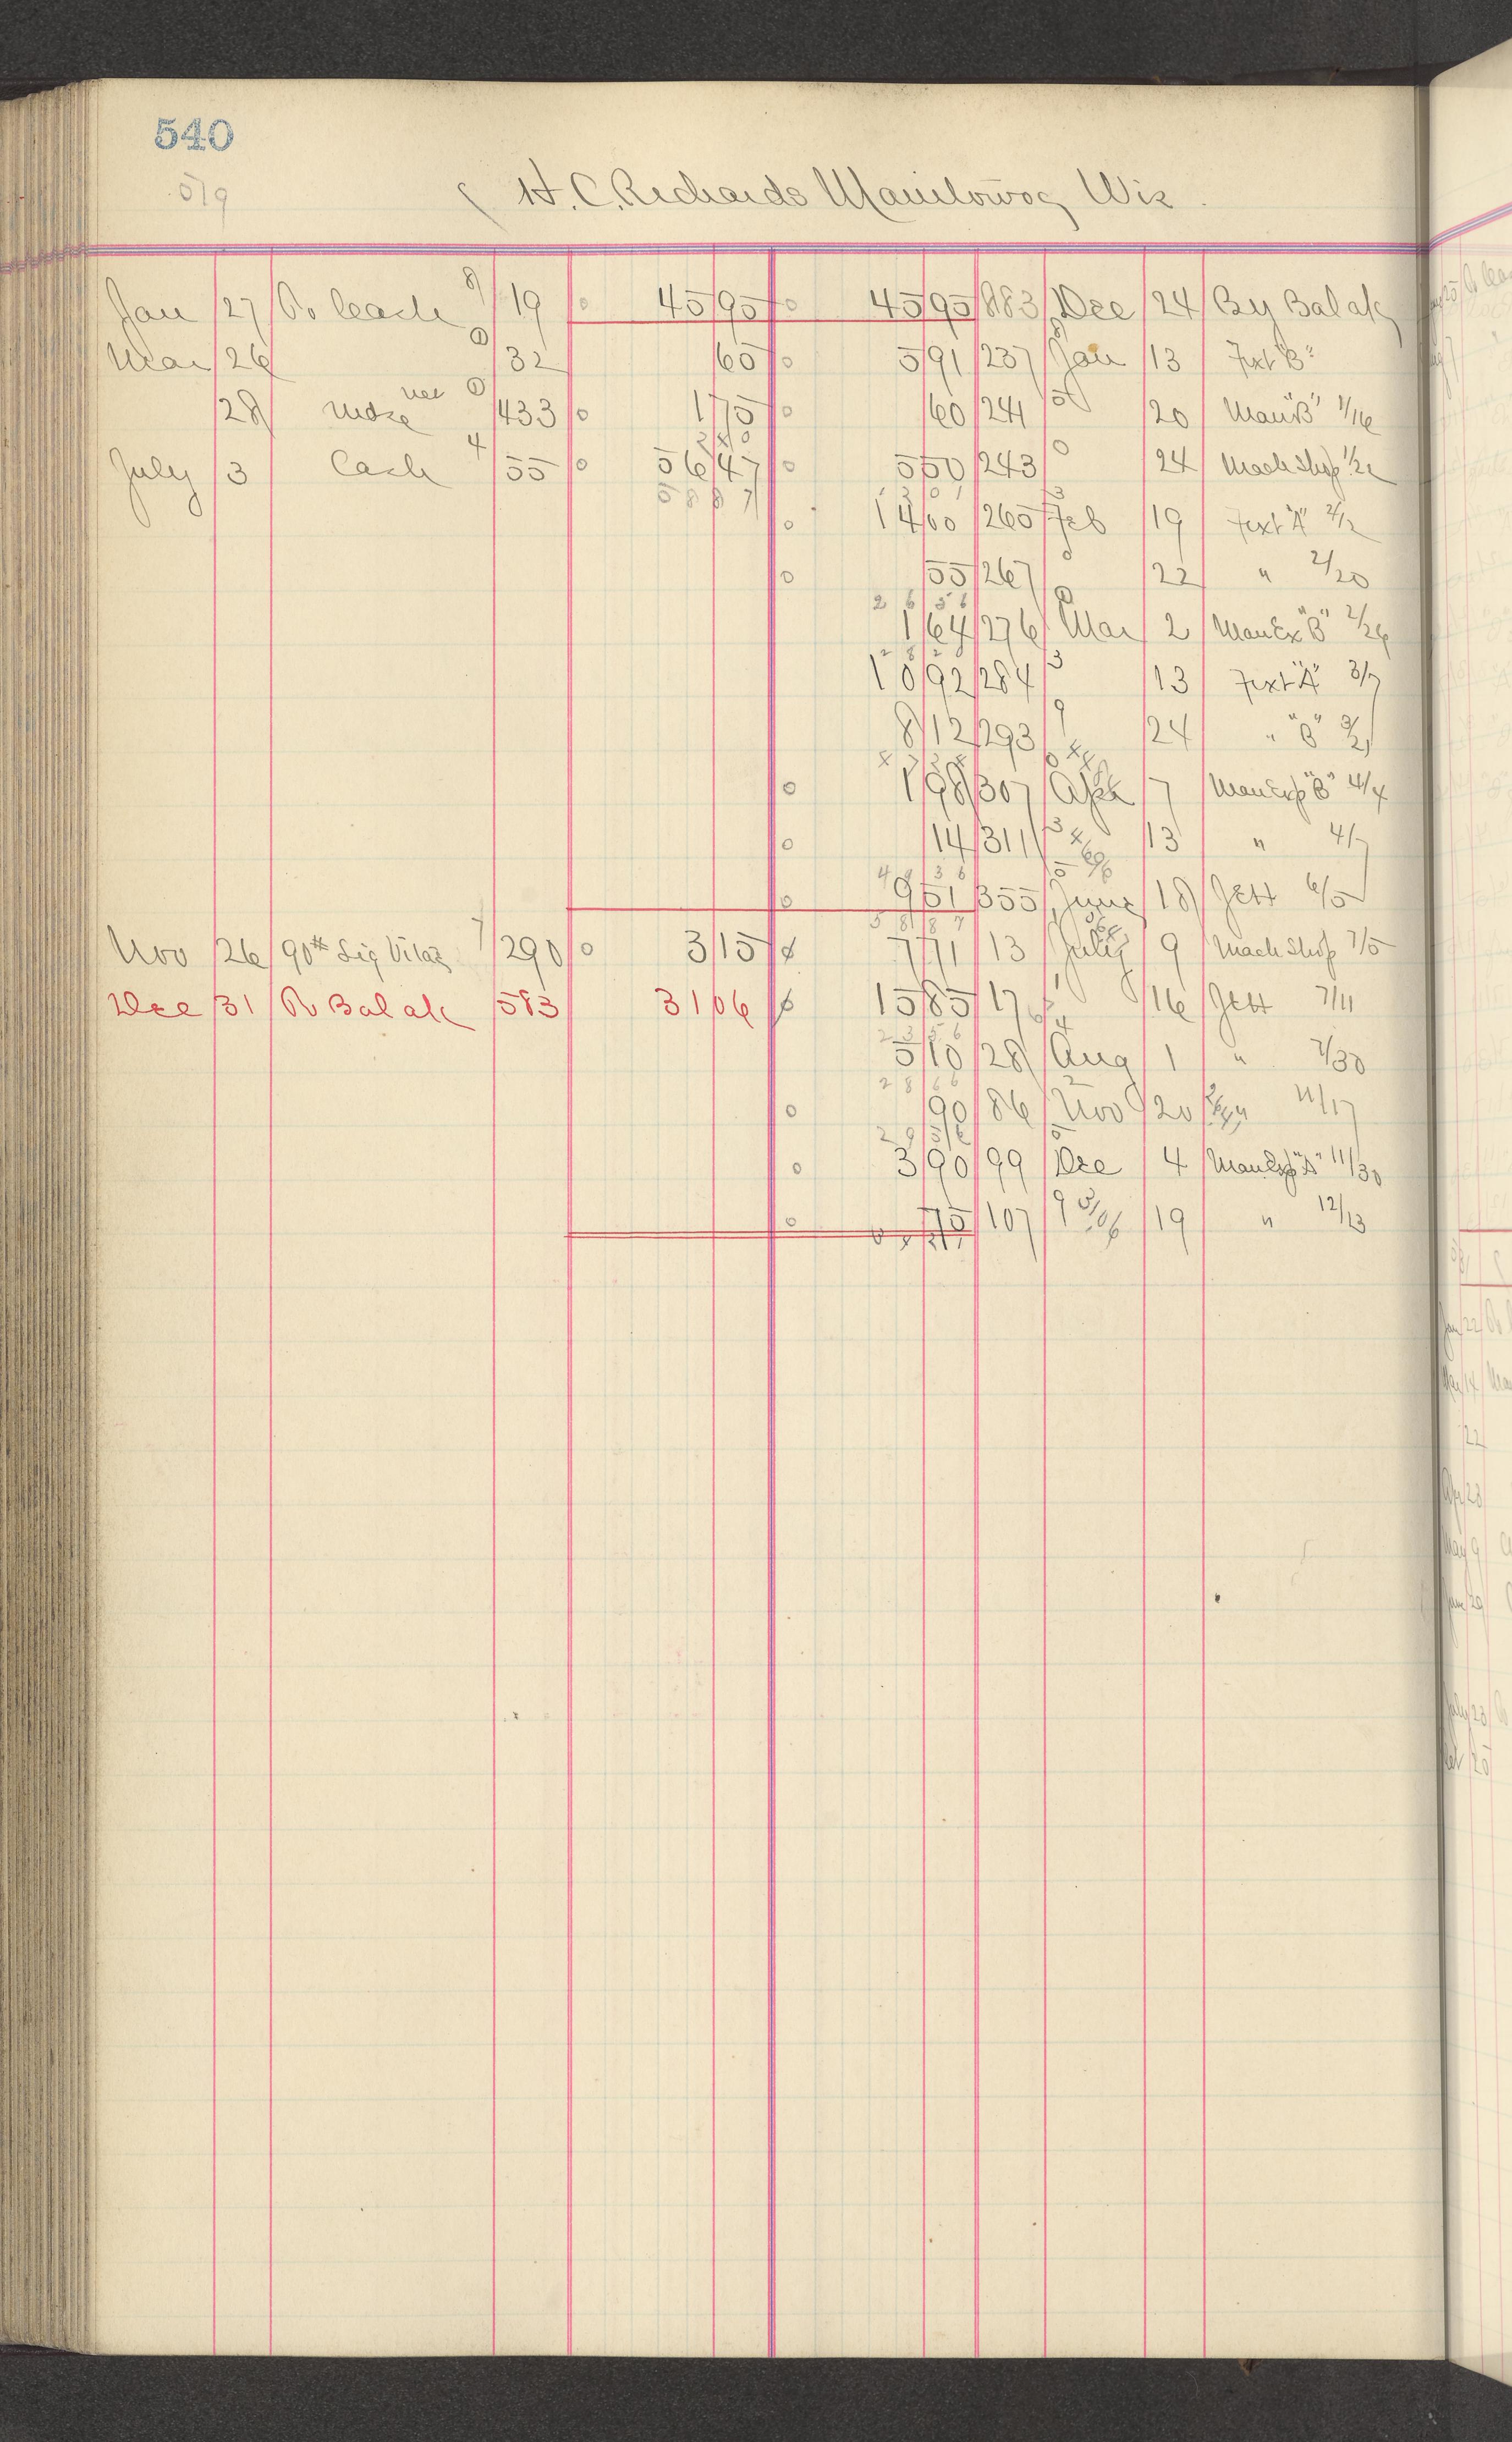 540
519
H. C. Richards Manitowoc Wis
Jan 27 To Cash 8 19 45 95 45 95 883 Dec 24 By Balak
Mar 26 1 32 60 5 91 237 Jan 13 Fixt "B"
28 Mdse 1 433 1 75 60 241 5 20 Man "B" 1/16
July 3 Cash 4 55 56 47 5 50 243 0 24 Mach Shop 1/22
58 87
14 00 260 Feb 19 Fixt "A" 2/2
55 267 22 " 2/20
26 56
1 64 276 Mar 2 Man Ex "B" 2/26
28 20
10 92 284 3 13 Fixt "A" 3/7
8 12 293 9 24 " "B" 3/21
1 98 307 Apr 7 Man Exp "B" 4/4
14 311 3 13 " 4/7
49 36
9 51 355 June 18 Jett 6/5
58 87
Nov 26 90# Sig Vitae 7 290 3 15 7 71 13 July 9 Mach Shop 7/5
Dec 31 To Balak 583 31 06 15 85 17 16 Jett 7/11
23 56
5 10 28 Aug 1 " 7/30
28 66
90 86 Nov 20 11/17
29 56
3 90 99 Dec 4 Man Exp "A" 11/30
75 107 9 19 " 12/13